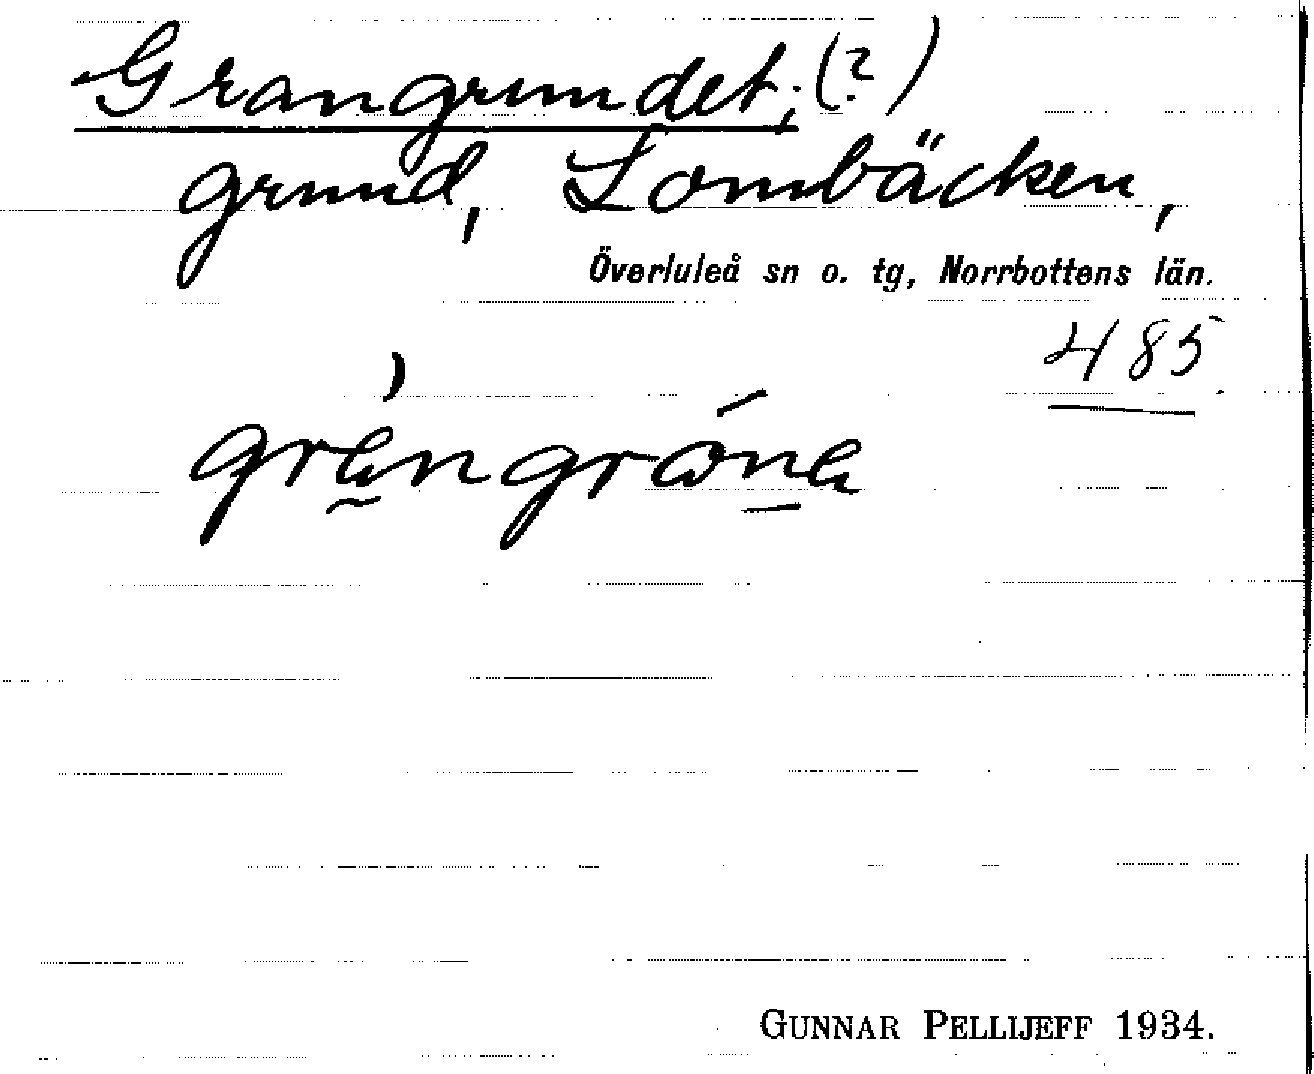 Grangrundet; (?)
grund, Lombäcken,
Överluleå sn o. tg, Norrbottens län.
485.
gràngrǿna
GUNNAR PELLIJEFF 1934.